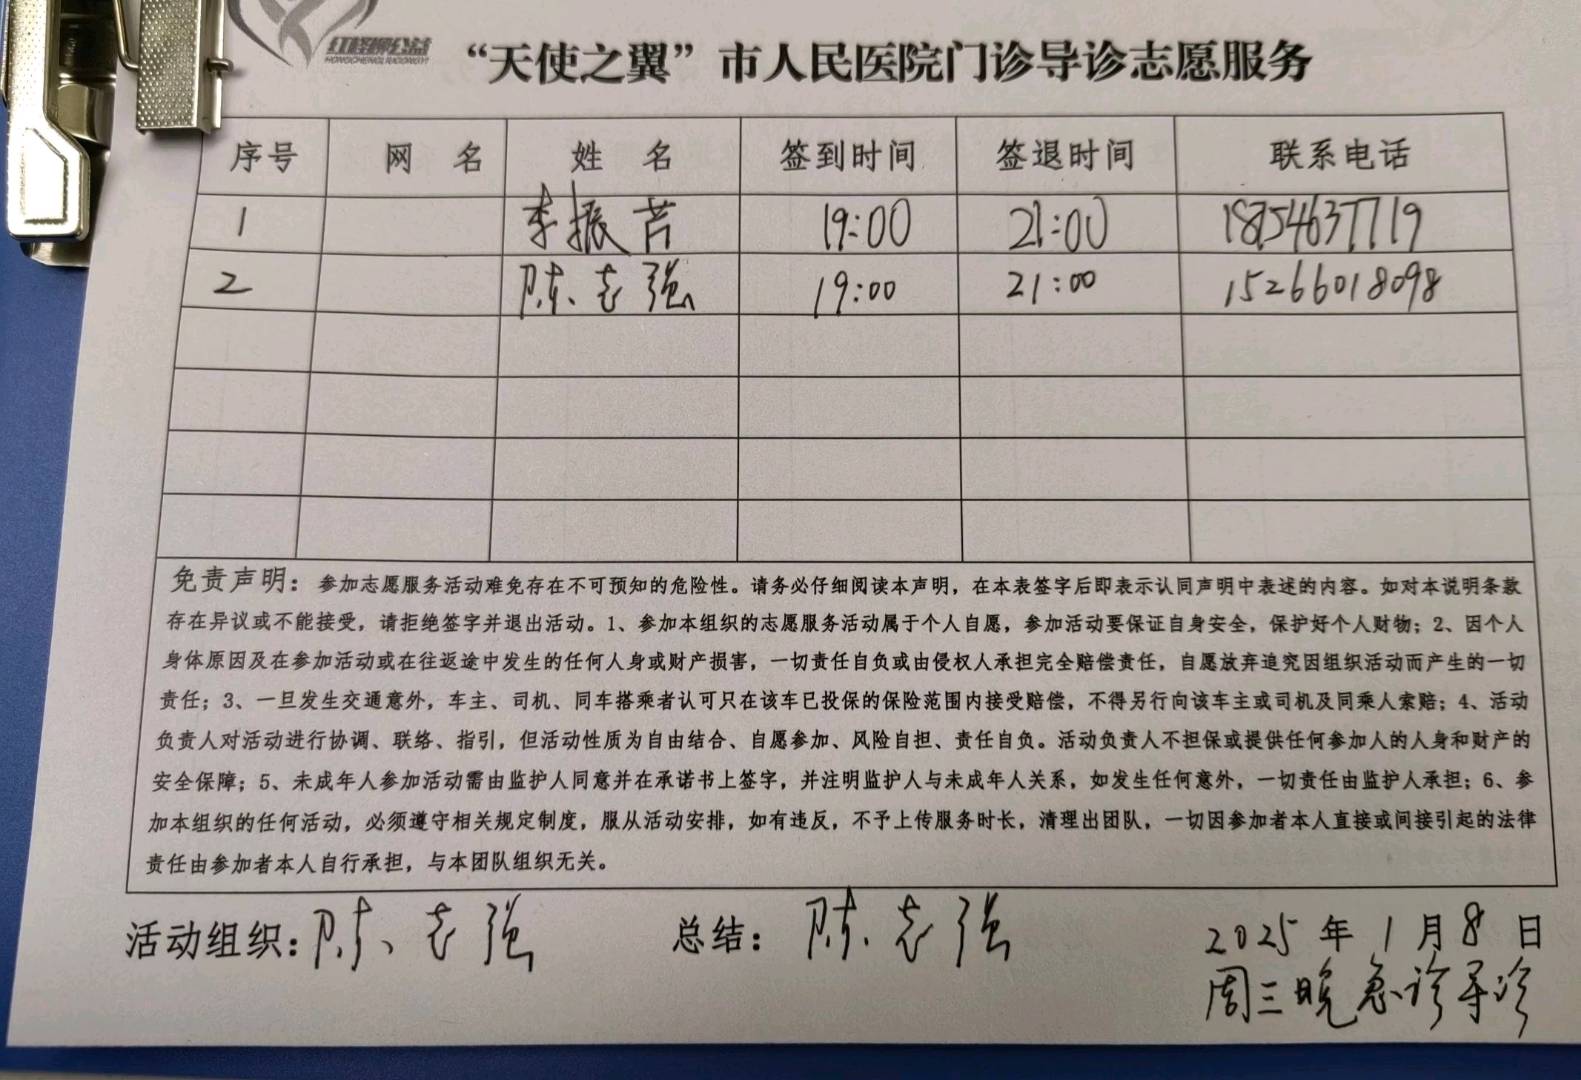 红橙柳公益
HONGCHENGLIUGONGYI
“天使之翼”市人民医院门诊导诊志愿服务
序号 网 名 姓 名 签到时间 签退时间 联系电话
1 李振芹 19:00 21:00 18754637719
2 陈志强 19:00 21:00 15266018098
免责声明：参加志愿服务活动难免存在不可预知的危险性。请务必仔细阅读本声明，在本表签字后即表示认同声明中表述的内容。如对本说明条款
存在异议或不能接受，请拒绝签字并退出活动。1、参加本组织的志愿服务活动属于个人自愿，参加活动要保证自身安全，保护好个人财物；2、因个人
身体原因及在参加活动或在往返途中发生的任何人身或财产损害，一切责任自负或由侵权人承担完全赔偿责任，自愿放弃追究因组织活动而产生的一切
责任；3、一旦发生交通意外，车主、司机、同车搭乘者认可只在该车已投保的保险范围内接受赔偿，不得另行向该车主或司机及同乘人索赔；4、活动
负责人对活动进行协调、联络、指引，但活动性质为自由结合、自愿参加、风险自担、责任自负。活动负责人不担保或提供任何参加人的人身和财产的
安全保障；5、未成年人参加活动需由监护人同意并在承诺书上签字，并注明监护人与未成年人关系，如发生任何意外，一切责任由监护人承担；6、参
加本组织的任何活动，必须遵守相关规定制度，服从活动安排，如有违反，不予上传服务时长，清理出团队，一切因参加者本人直接或间接引起的法律
责任由参加者本人自行承担，与本团队组织无关。
活动组织：陈志强 总结：陈志强 2025年1月8日
周三晚急诊导诊